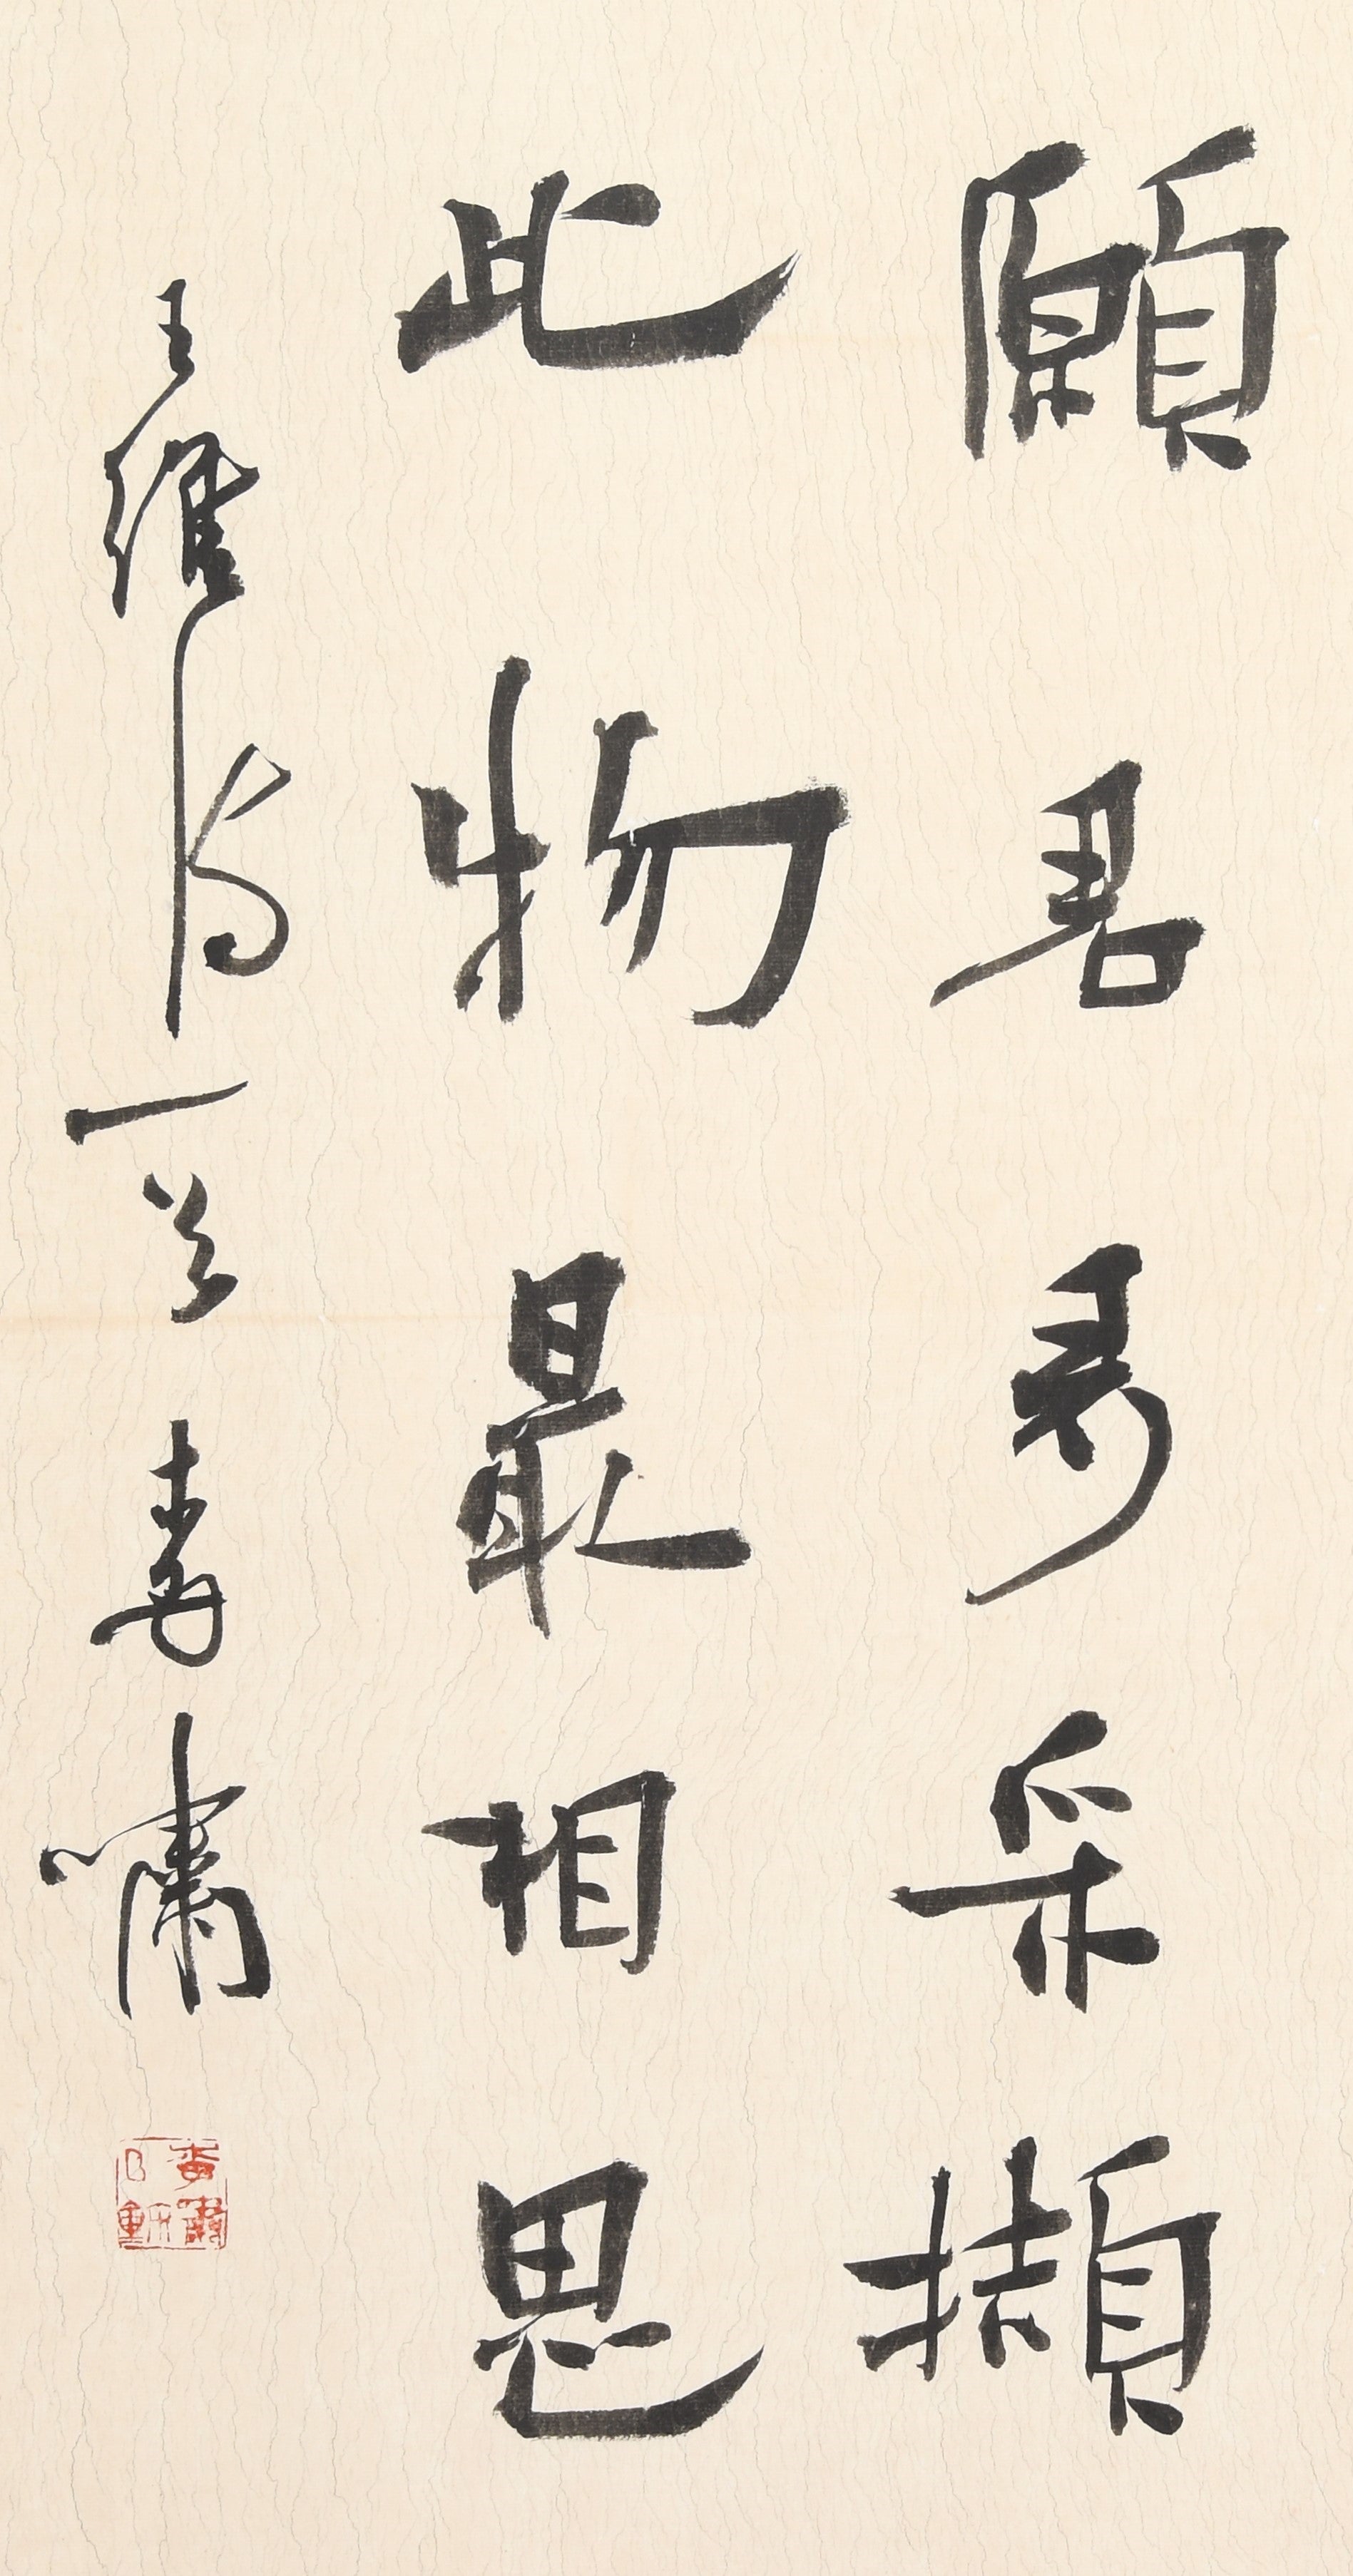 願君多采擷
此物最相思
王維詩一首 嘯